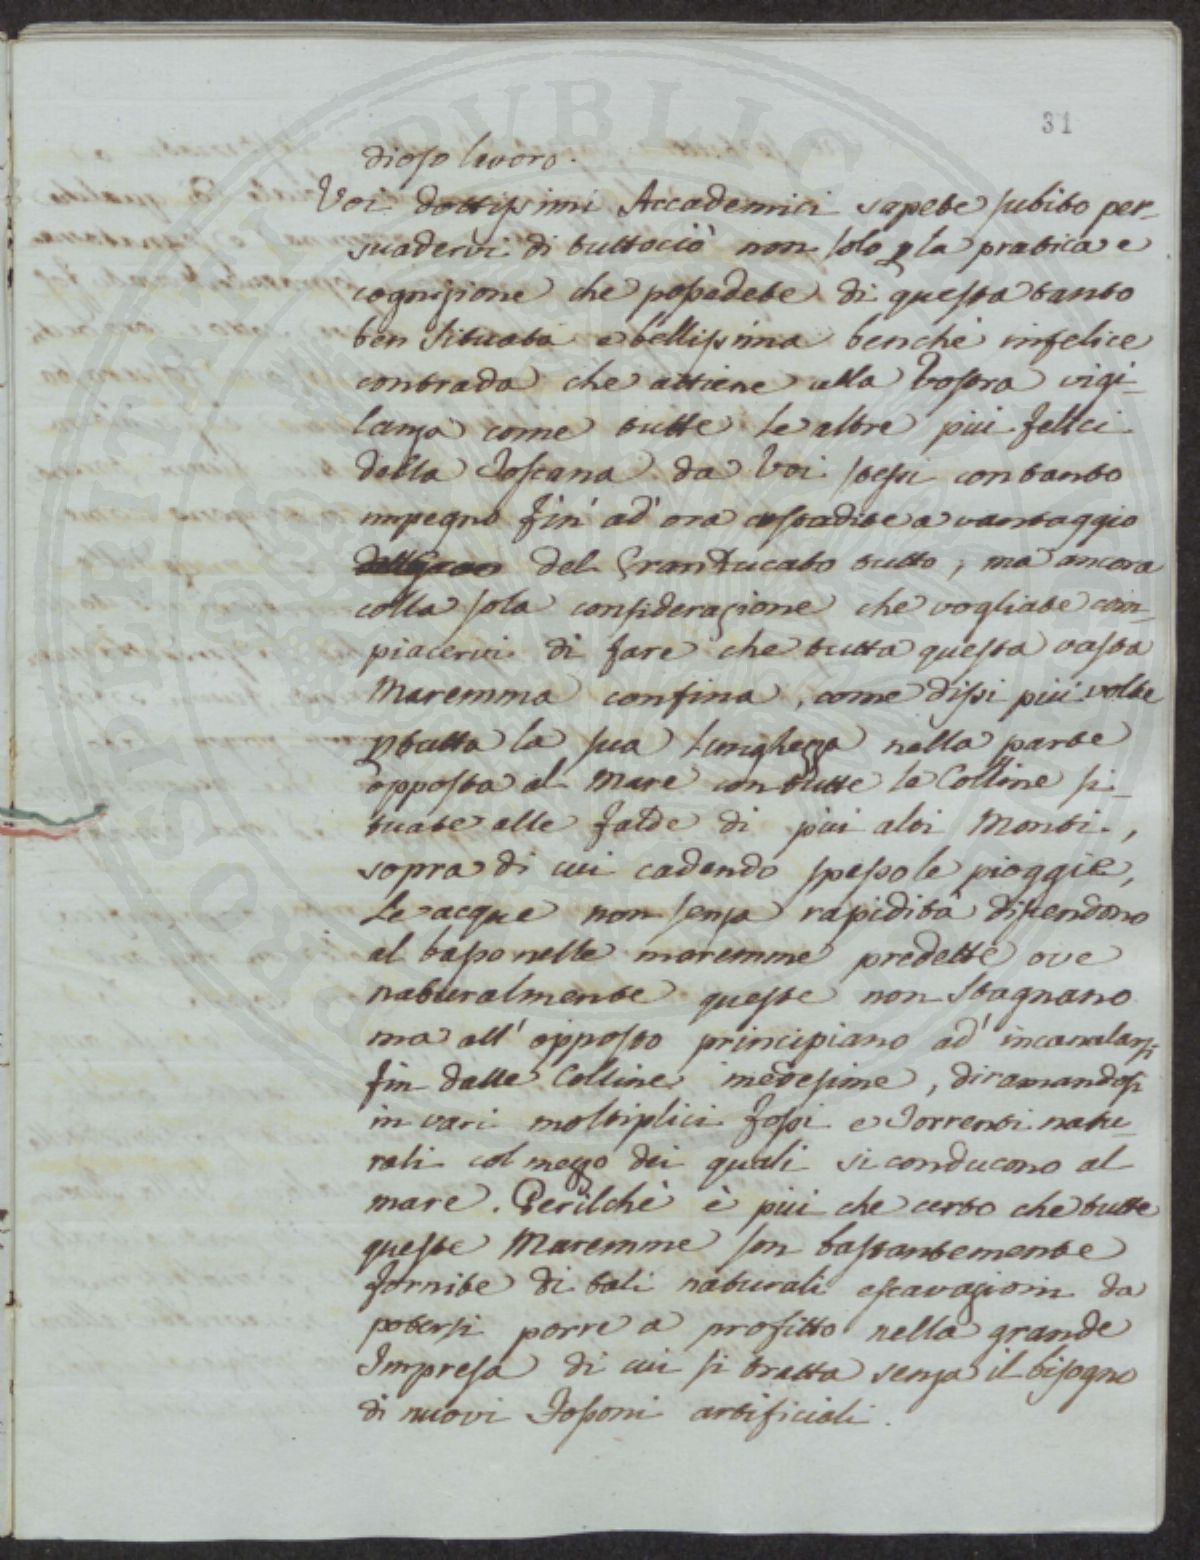 31
dioso lavoro.
Voi dottissimi Accademici sapete subito per-
suadervi di tuttociò non solo p la pratica e
cognizione che possedete di questa tanto
ben situata e bellissima benchè infelice
contrada che attiene alla Vostra vigi-
lanza come tutte le altre più felici
della Toscana da Voi stessi con tanto
impegno fin' ad' ora custodite a vantaggio
del GranDucato tutto, ma ancora
colla sola considerazione che vogliate com-
piacervi di fare che tutta questa vasta
Maremma confina, come dissi più volte
p tutta la sua lunghezza nella parte
opposta al Mare con tutte le Colline si-
tuate alle falde di più alti Monti,
sopra di cui cadendo spesso le pioggie,
Le acque non senza rapidità discendono
al basso nelle maremme predette ove
naturalmente queste non stagnano
ma all' opposto principiano ad' incanalarsi
fin dalle Colline medesime, diramandosi
in vari moltiplici fossi e Torrenti natu-
rali col mezzo dei quali si conducono al
mare. Perilchè è più che certo che tutte
queste Maremme son bastantemente
fornite di tali naturali escavazioni da
potersi porre a profitto nella grande
Impresa di cui si tratta senza il bisogno
di nuovi Fossoni artificiali.
PROSPERITATI PUBLICAE